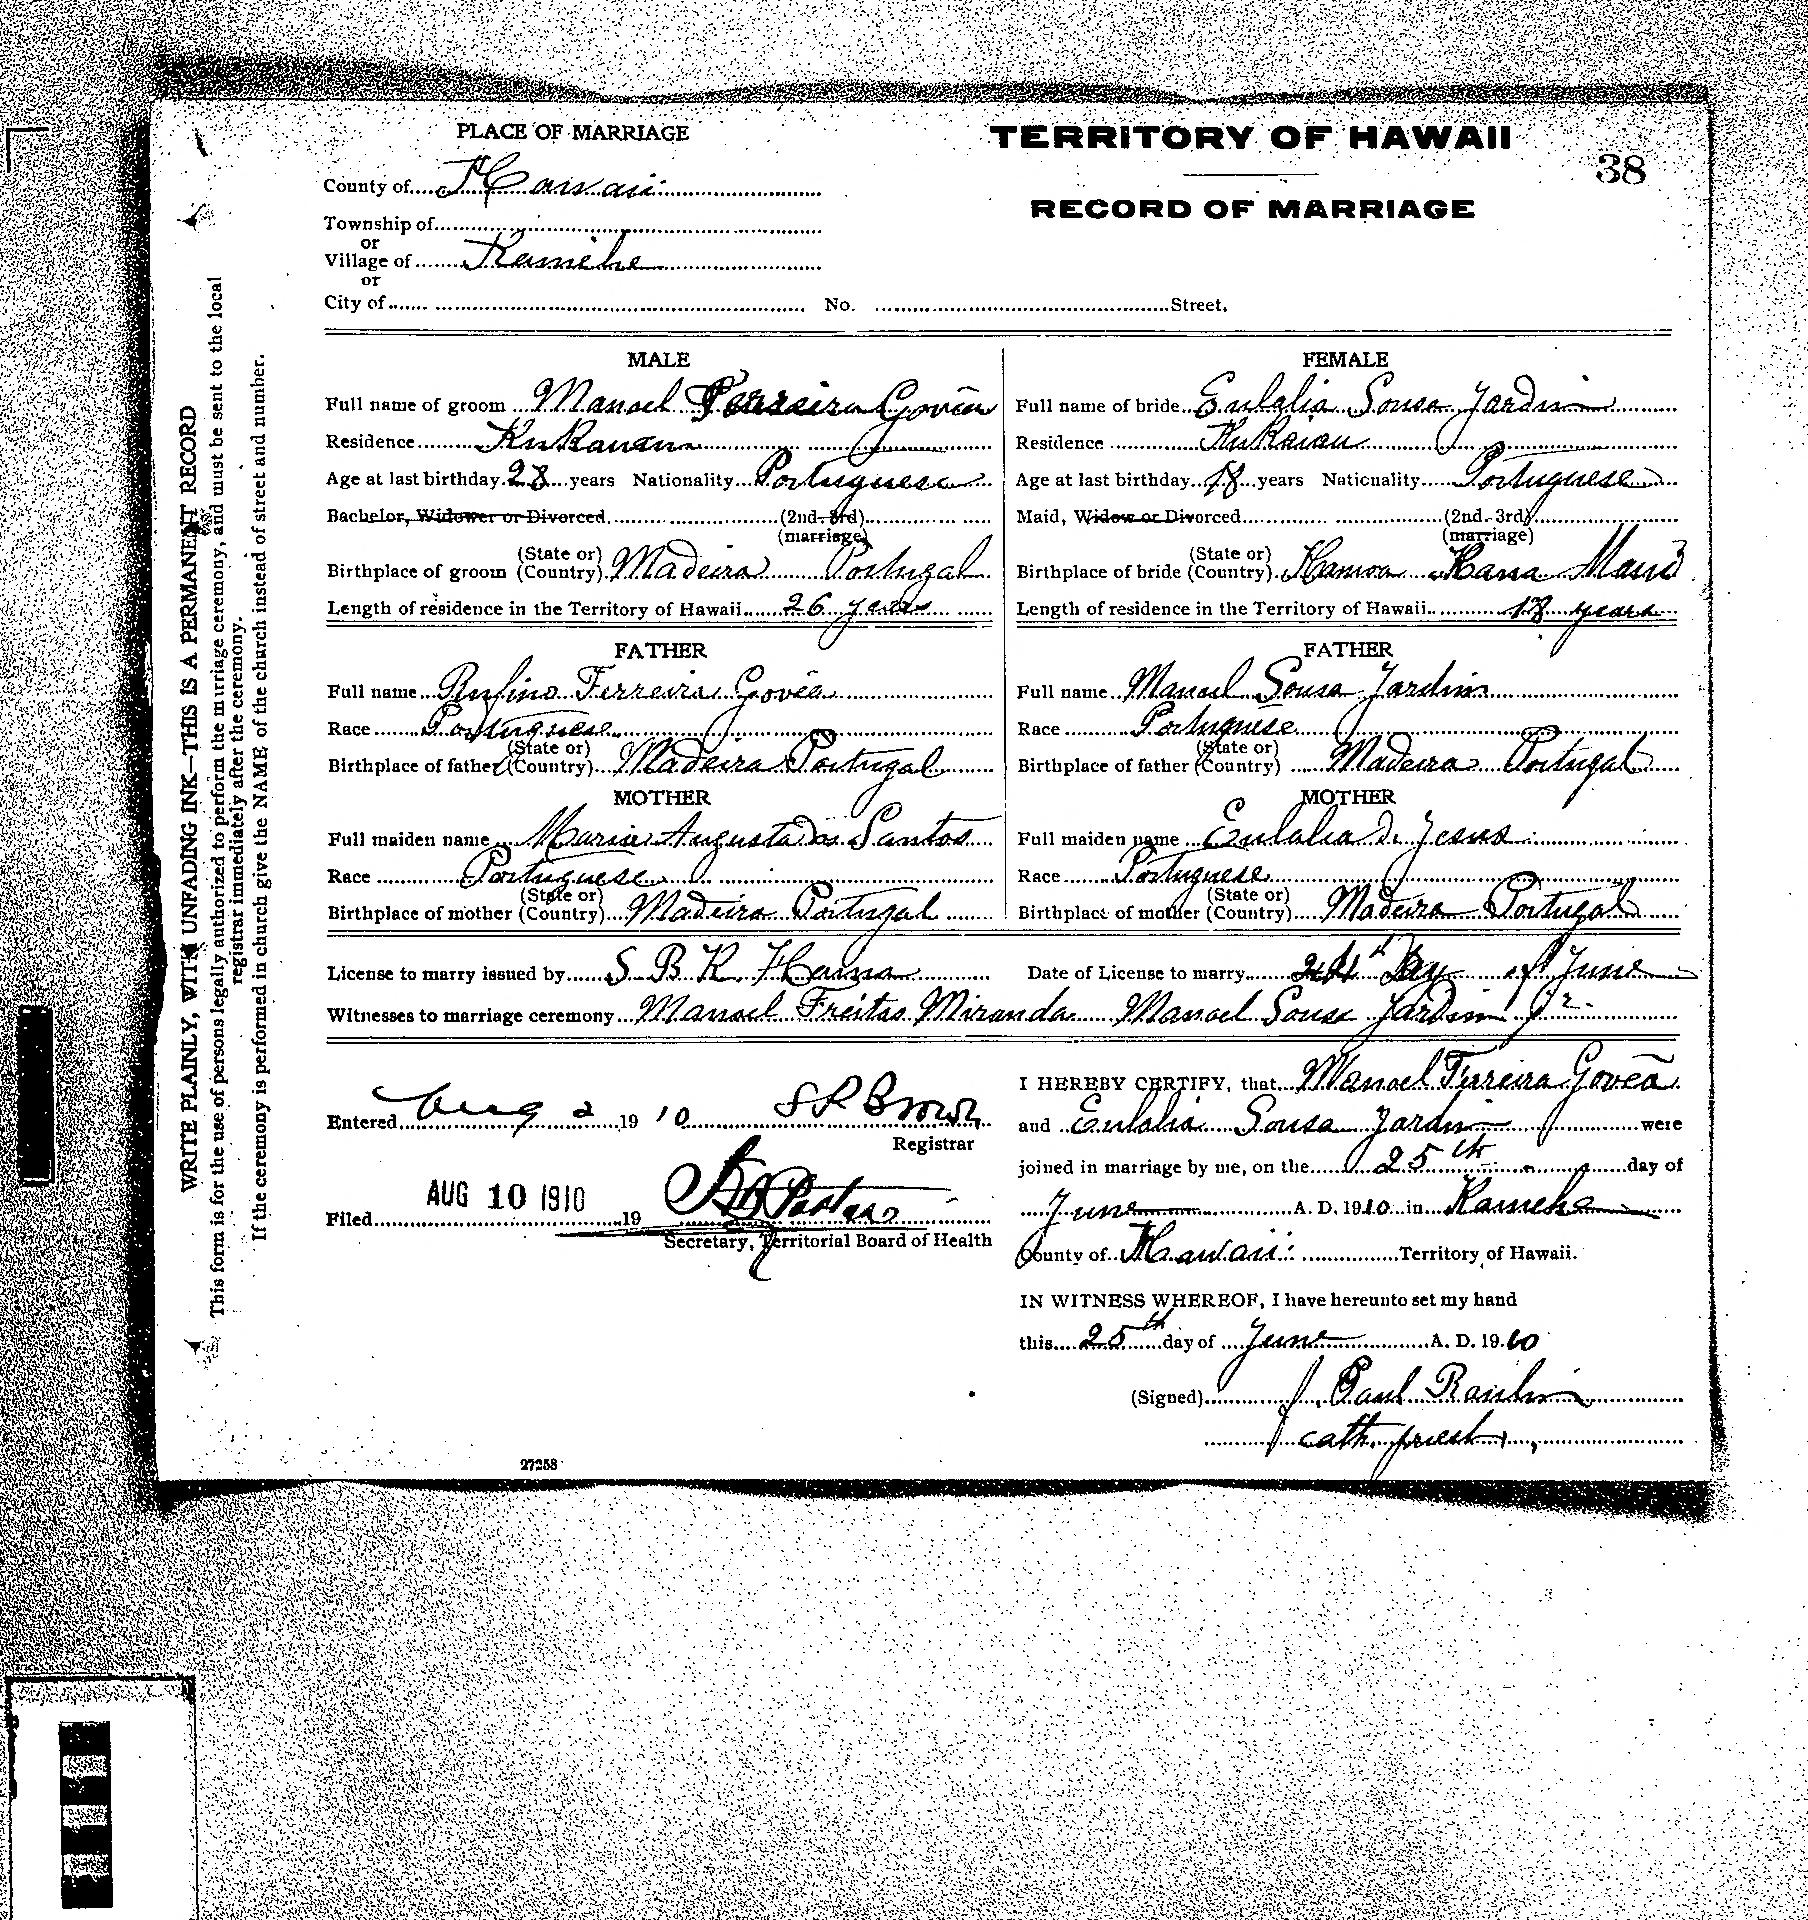 PLACE OF MARRIAGE
TERRITORY OF HAWAII
38
RECORD OF MARRIAGE
County of Hawaii
Township of
or
Village of
or
City of No. Street.
MALE
Full name of groom Manoel Ferreira Govêa
Residence
Age at last birthday 28 years Nationality Portuguese
Bachelor, Widower or Divorced (2nd-3rd)
(marriage)
Birthplace of groom (State or Country) Madeira Portugal
Length of residence in the Territory of Hawaii 26 years
FATHER
Full name Rufino Ferreira Govêa
Race Portuguese
Birthplace of father (State or Country) Madeira Portugal
MOTHER
Full maiden name Maria Augusta dos Santos
Race Portuguese
Birthplace of mother (State or Country) Madeira Portugal
FEMALE
Full name of bride Eulalia Sousa Jardin
Residence Kukaiau
Age at last birthday 18 years Nationality Portuguese
Maid, Widow or Divorced (2nd-3rd)
(marriage)
Birthplace of bride (State or Country) Hamoa Hana Maui
Length of residence in the Territory of Hawaii 18 years
FATHER
Full name Manoel Sousa Jardin
Race Portuguese
Birthplace of father (State or Country) Madeira Portugal
MOTHER
Full maiden name Eulalia de Jesus
Race Portuguese
Birthplace of mother (State or Country) Madeira Portugal
License to marry issued by S. B. K. Date of License to marry 24th Day of June
Witnesses to marriage ceremony Manoel Freitas Miranda Manoel Sousa Jardin Jr.
Entered Aug 2 1910
Registrar
AUG 10 1910
Filed 19
Secretary, Territorial Board of Health
I HEREBY CERTIFY, that Manoel Ferreira Govêa
and Eulalia Sousa Jardin were
joined in marriage by me, on the 25th day of
June A. D. 1910 in
County of Hawaii Territory of Hawaii.
IN WITNESS WHEREOF, I have hereunto set my hand
this 25th day of June A. D. 1910
(Signed) J. Paul
cath. priest
27258
WRITE PLAINLY, WITH UNFADING INK—THIS IS A PERMANENT RECORD
This form is for the use of persons legally authorized to perform the marriage ceremony, and must be sent to the local
registrar immediately after the ceremony.
If the ceremony is performed in church give the NAME of the church instead of street and number.